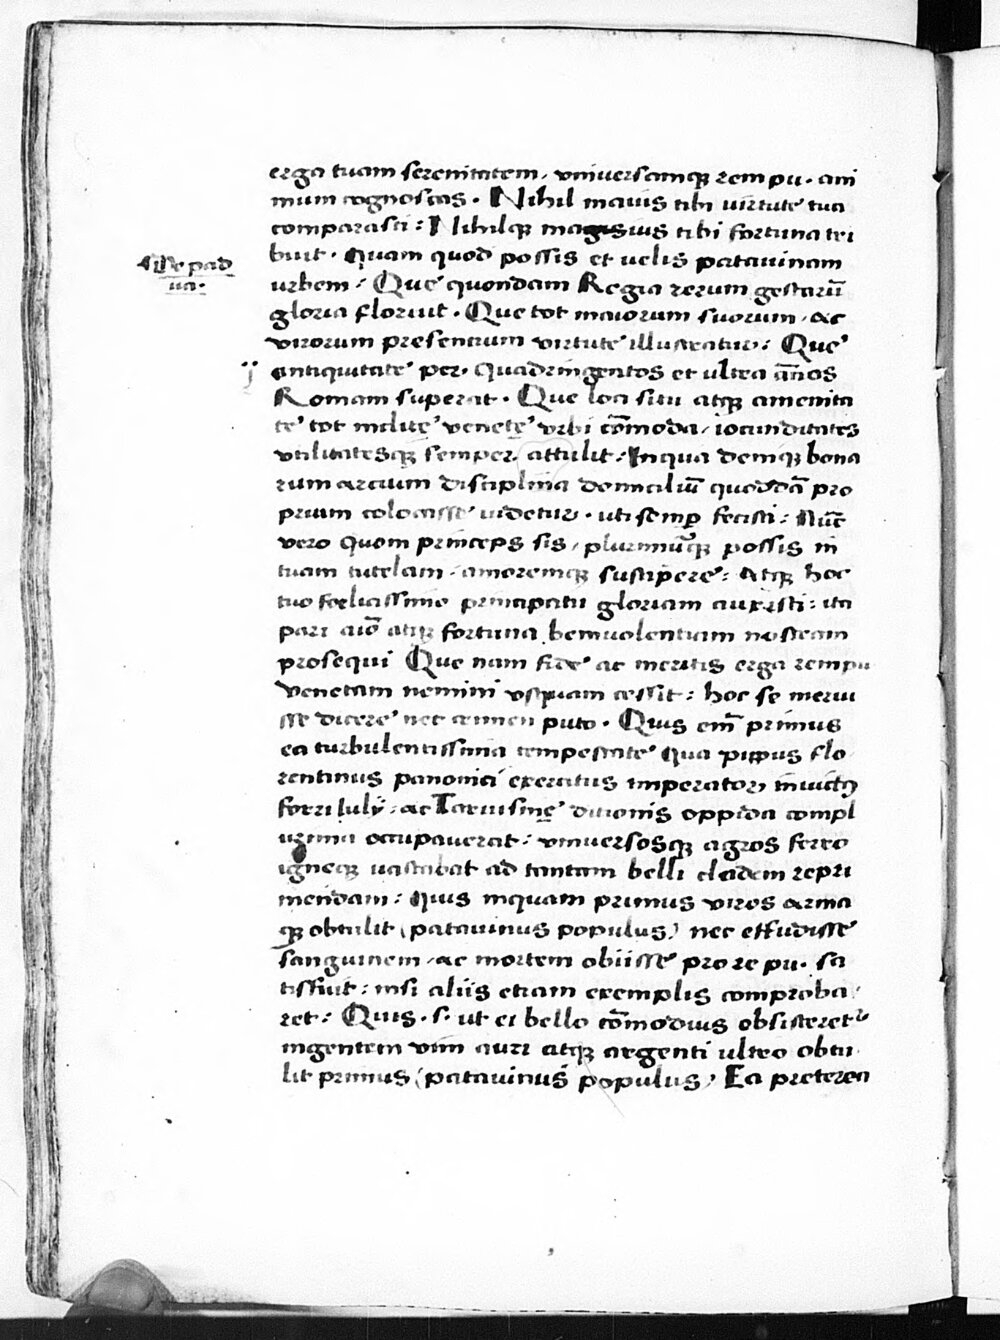 erga tuam serenitatem, vniversamq; rem pu. ani
mum cognoscas. Nihil maius tibi uirtute tua
comparasti: Nihilq; magis ius tibi fortuna tri
buit. Quam quod possis et uelis patauinam
pad
ua.
urbem: Que quondam Regia rerum gestarū
gloria floruit. Que tot maiorum suorum, ac
virorum presentium virtute illustratur: Que
ij
antiquitate per. Quadringentos et ultra ānos
Romam superat. Que loci situ atq; amenita
te tot inclitę venetę vrbi cōmoda, iocunditates
vtilitatesq; semper attulit: In qua deniq; bona
rum artium disciplina domiciliū quoddā pro
prium colocasse uidetur. uti semp fecisti: Nūc
vero quom princeps sis, plurimūq; possis in
tuam tutelam, amoremq; suscipere: Atq; hoc
tuo foelicissimo principatu gloriam auxisti: ita
pari aīo atq; fortuna beniuolentiam nostram
prosequi Que nam fide ac meritis erga rempu
venetam nemini vsquam cessit: hoc se merui
sse dicere nec tamen puto. Quis enī primus
ea turbulentissima tempestate qua pippus flo
rentinus panonici exercitus imperator, inuictq
fori Iulÿ: ac Taruisinę ditionis oppida compl
urima occupauerat: vniversosq; agros ferro
igneq; uastabat ad tantam belli cladem repri
mendam: Quis inquam primus viros arma
q; obtulit (patauinus populus) nec effudisse
sanguinem, ac mortem obiisse pro re pu. sa
tis fuit: nisi aliis etiam exemplis comproba
ret: Quis. s. ut ei bello cōmodius obsisteret
ingentem vim auri atq; argenti ultro obtu
lit primus (patauinus populus) Ea preterea